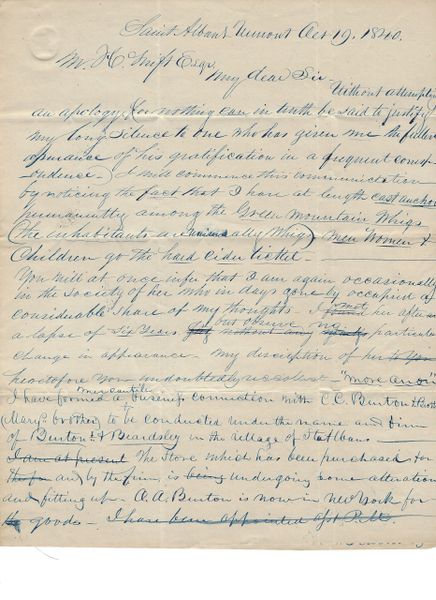 Saint Albans Vermont Oct 19, 1840.
Mr. H. C. Swift Esqr.
My dear Sir
Without attempting
an apology, for nothing can in truth be said to justify
my long silence to one who has given me the fullest
assurance of his gratification in a frequent corresp-
ondence, I will commence this communication
by noticing the fact that I have at length cast anchor
permanently among the Green Mountain Whigs
(The inhabitants are universally Whig) Men Women &
Children go the hard cider ticket—
You will at once infer that I am again occasionally
in the society of her who in days gone by occupied a
considerable share of my thoughts— I found her after
a lapse of Six Years but observe no particular
change in appearance. My description of her to you
heretofore you undoubtedly recollect "more anon"
I have formed a mercantile business connection with C. C. Burton
(Marys brother) to be conducted under the name and firm
of Burton & Beardsley in the village of St Albans—
I am at present The Store which has been purchased for
and by the firm, is being undergoing some alteration
and fitting up— A. A. Burton is now in New York for
goods— I have been appointed